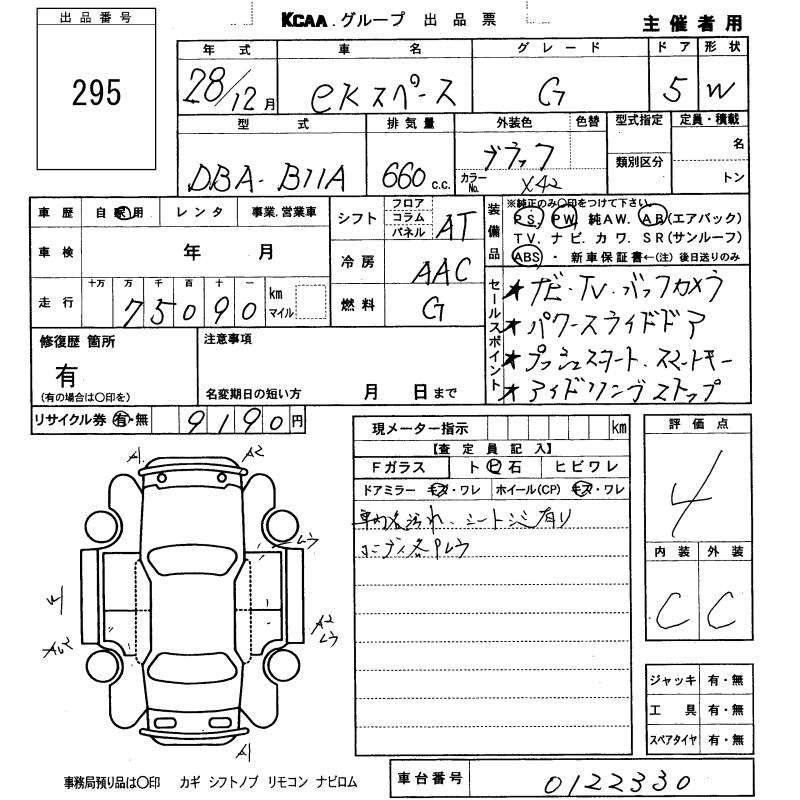 KCAA グループ 出品票
主催者用
出品番号
295
年式 車名 グレード ドア 形状
28/12月 eKスペース G 5 W
型式 排気量 外装色 色替 型式指定 定員・積載
DBA-B11A 660 c.c. ブラック
カラーNo. X42
類別区分
名
トン
車歴 自家用 レンタ 事業.営業車
車検 年 月
走行 十万 万 千 百 十 一
75090 km マイル
シフト フロア コラム パネル AT
冷房 AAC
燃料 G
装備品
※純正のみ〇印をつけて下さい。
PS, PW, 純AW. AB(エアバック)
TV. ナビ. カワ. SR(サンルーフ)
ABS ・ 新車保証書←(注) 後日送りのみ
セールスポイント
★ナビ・TV・バックカメラ
★パワースライドドア
★プッシュスタート.スマートキー
★アイドリングストップ
修復歴 箇所
有
(有の場合は〇印を)
注意事項
名変期日の短い方 月 日まで
リサイクル券 有・無 9190円
現メーター指示 km
【査定員記入】
Fガラス ト ビ 石 ヒビワレ
ドアミラー キズ・ワレ ホイール(CP) キズ・ワレ
車内各汚れ、シートシミ有り
評価点
4
内装 外装
C C
A1 A2
A2
A1
ジャッキ 有・無
工具 有・無
スペアタイヤ 有・無
事務局預り品は〇印 カギ シフトノブ リモコン ナビロム
車台番号 0122330